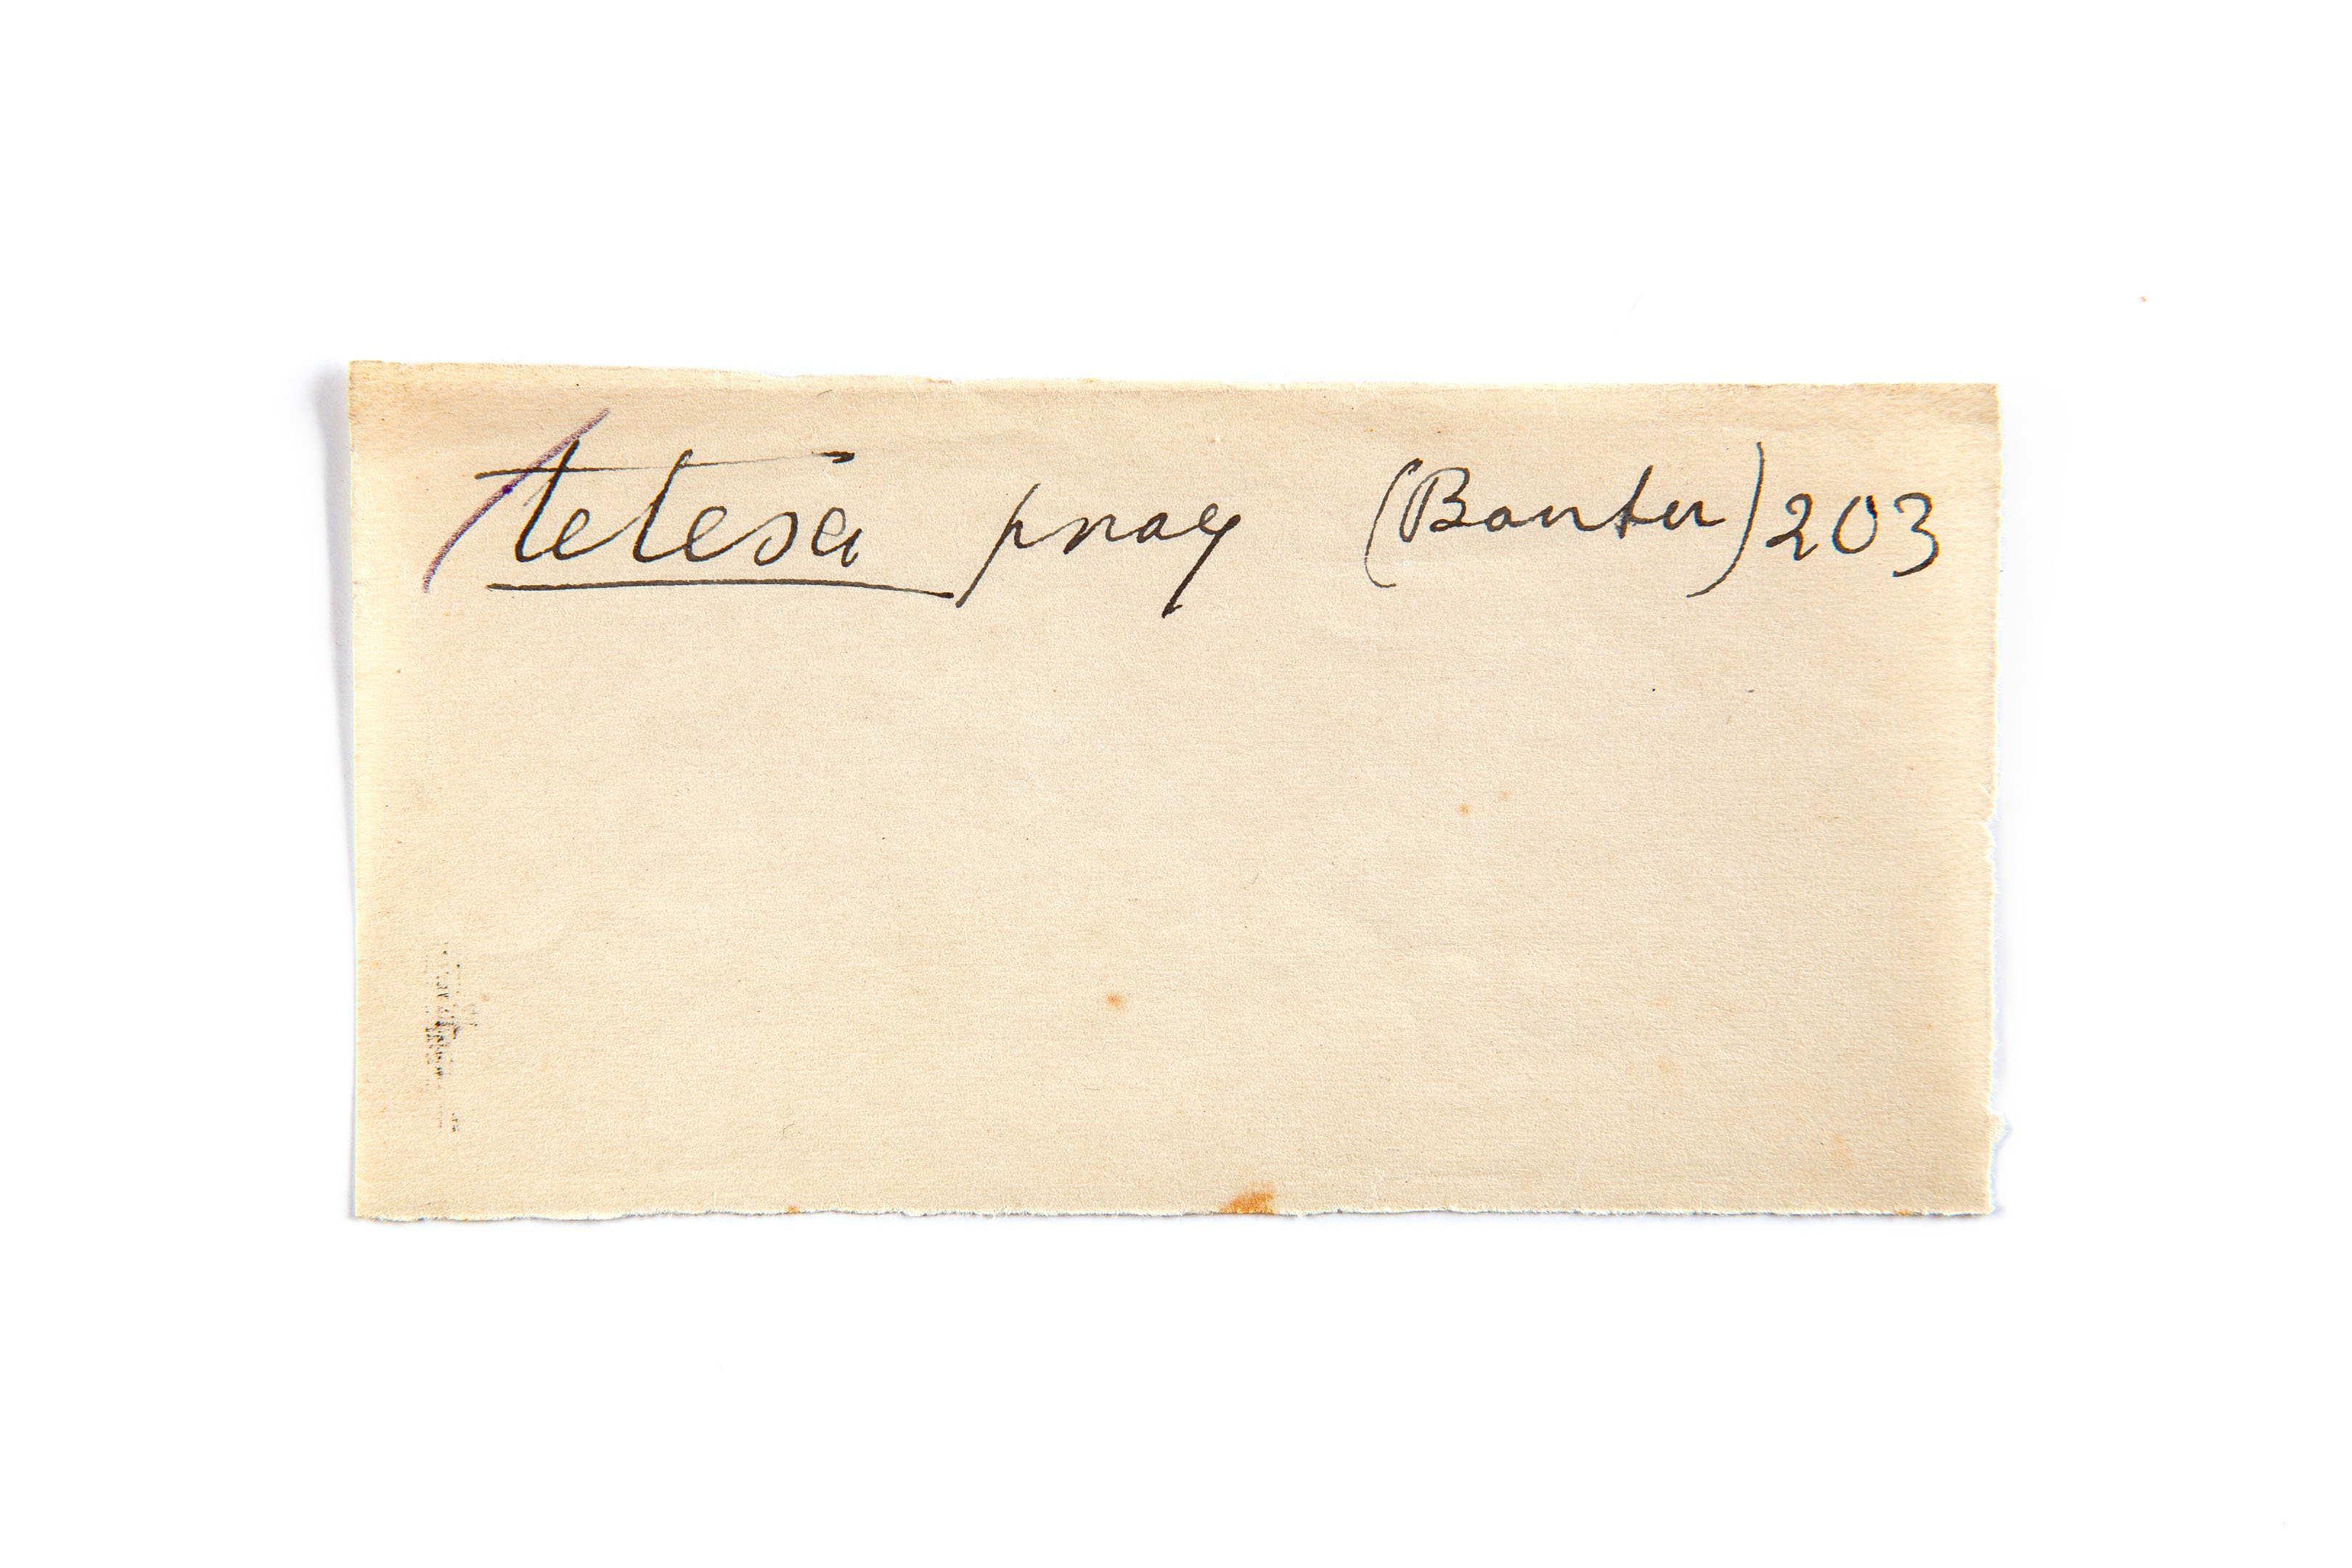 tetesa pray (Bantu) 203